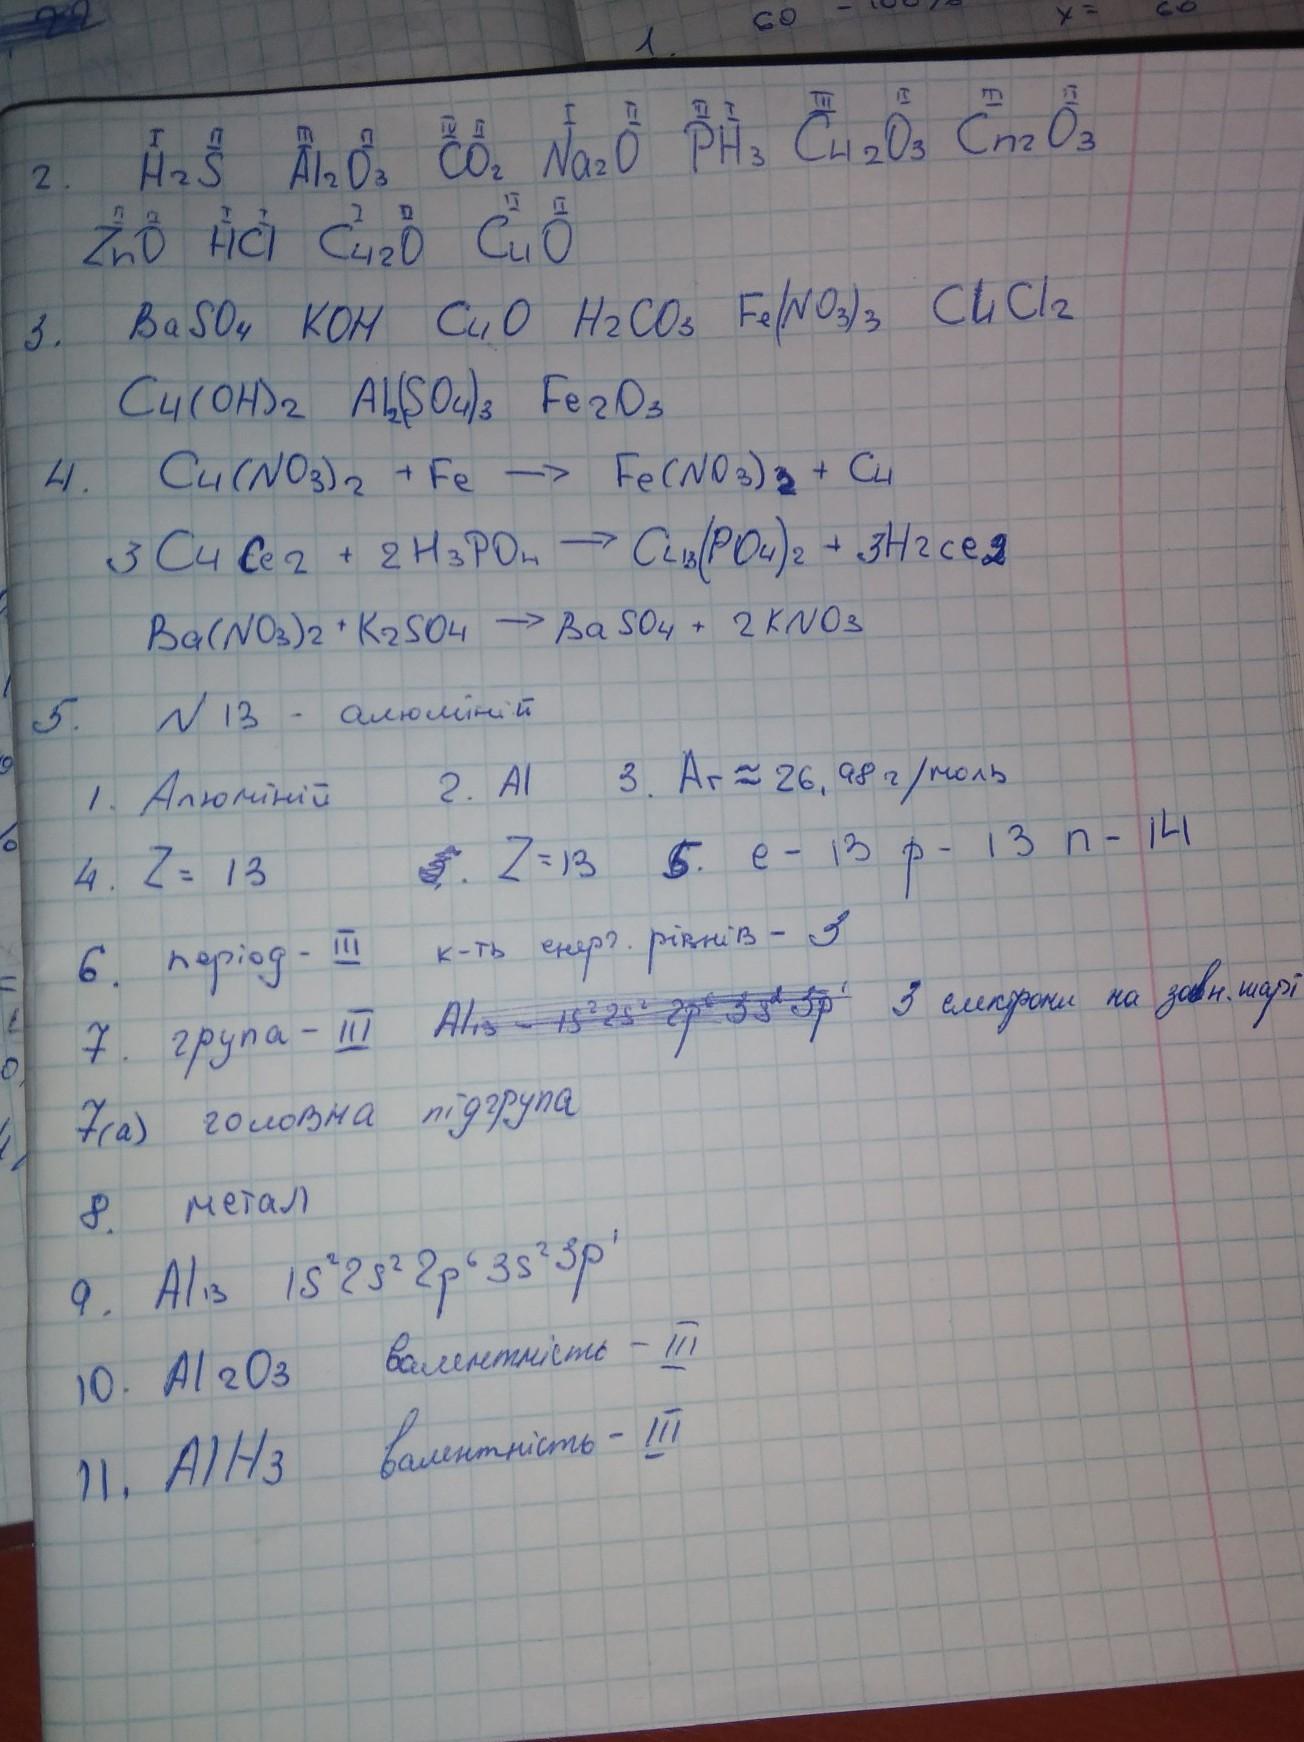 60 - 100% x = 60
1.
2. H₂S Al₂O₃ CO₂ Na₂O PH₃ Cu₂O₃ Cn₂O₃
ZnO HCl Cu₂O CuO
3. BaSO₄ KOH CuO H₂CO₃ Fe(NO₃)₃ CuCl₂
Cu(OH)₂ Al₂(SO₄)₃ Fe₂O₃
4. Cu(NO₃)₂ + Fe → Fe(NO₃)₂ + Cu
3CuCl₂ + 2H₃PO₄ → Cu₃(PO₄)₂ + 3H₂Cl₂
Ba(NO₃)₂ + K₂SO₄ → BaSO₄ + 2KNO₃
5. N 13 - алюміній
1. Алюміній 2. Al 3. Ar ≈ 26,98 г/моль
4. Z = 13 Z = 13 5. e - 13 p - 13 n - 14
6. період - III к-ть енерг. рівнів - 3
7. група - III Al₁₃ - 1s² 2s² 2p⁶ 3s² 3p¹ 3 електрони на зовн. шарі
7(а) головна підгрупа
8. метал
9. Al₁₃ 1s² 2s² 2p⁶ 3s² 3p¹
10. Al₂O₃ валентність - III
11. AlH₃ валентність - III